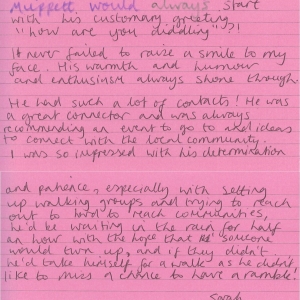 Muppett would always start
with his customary greeting
"how are you diddling"?!
It never failed to raise a smile to my
face. His warmth and humour
and enthusiasm always shone through.
He had such a lot of contacts! He was
a great connector and was always
recommending an event to go to and ideas
to connect with the local community.
I was so impressed with his determination
and patience, especially with setting
up walking groups and trying to reach
out to hard to reach communities,
he'd be waiting in the rain for half
an hour with the hope that someone
would turn up, and if they didn't
he'd take himself for a walk as he didn't
like to miss a chance to have a ramble!
Sarah